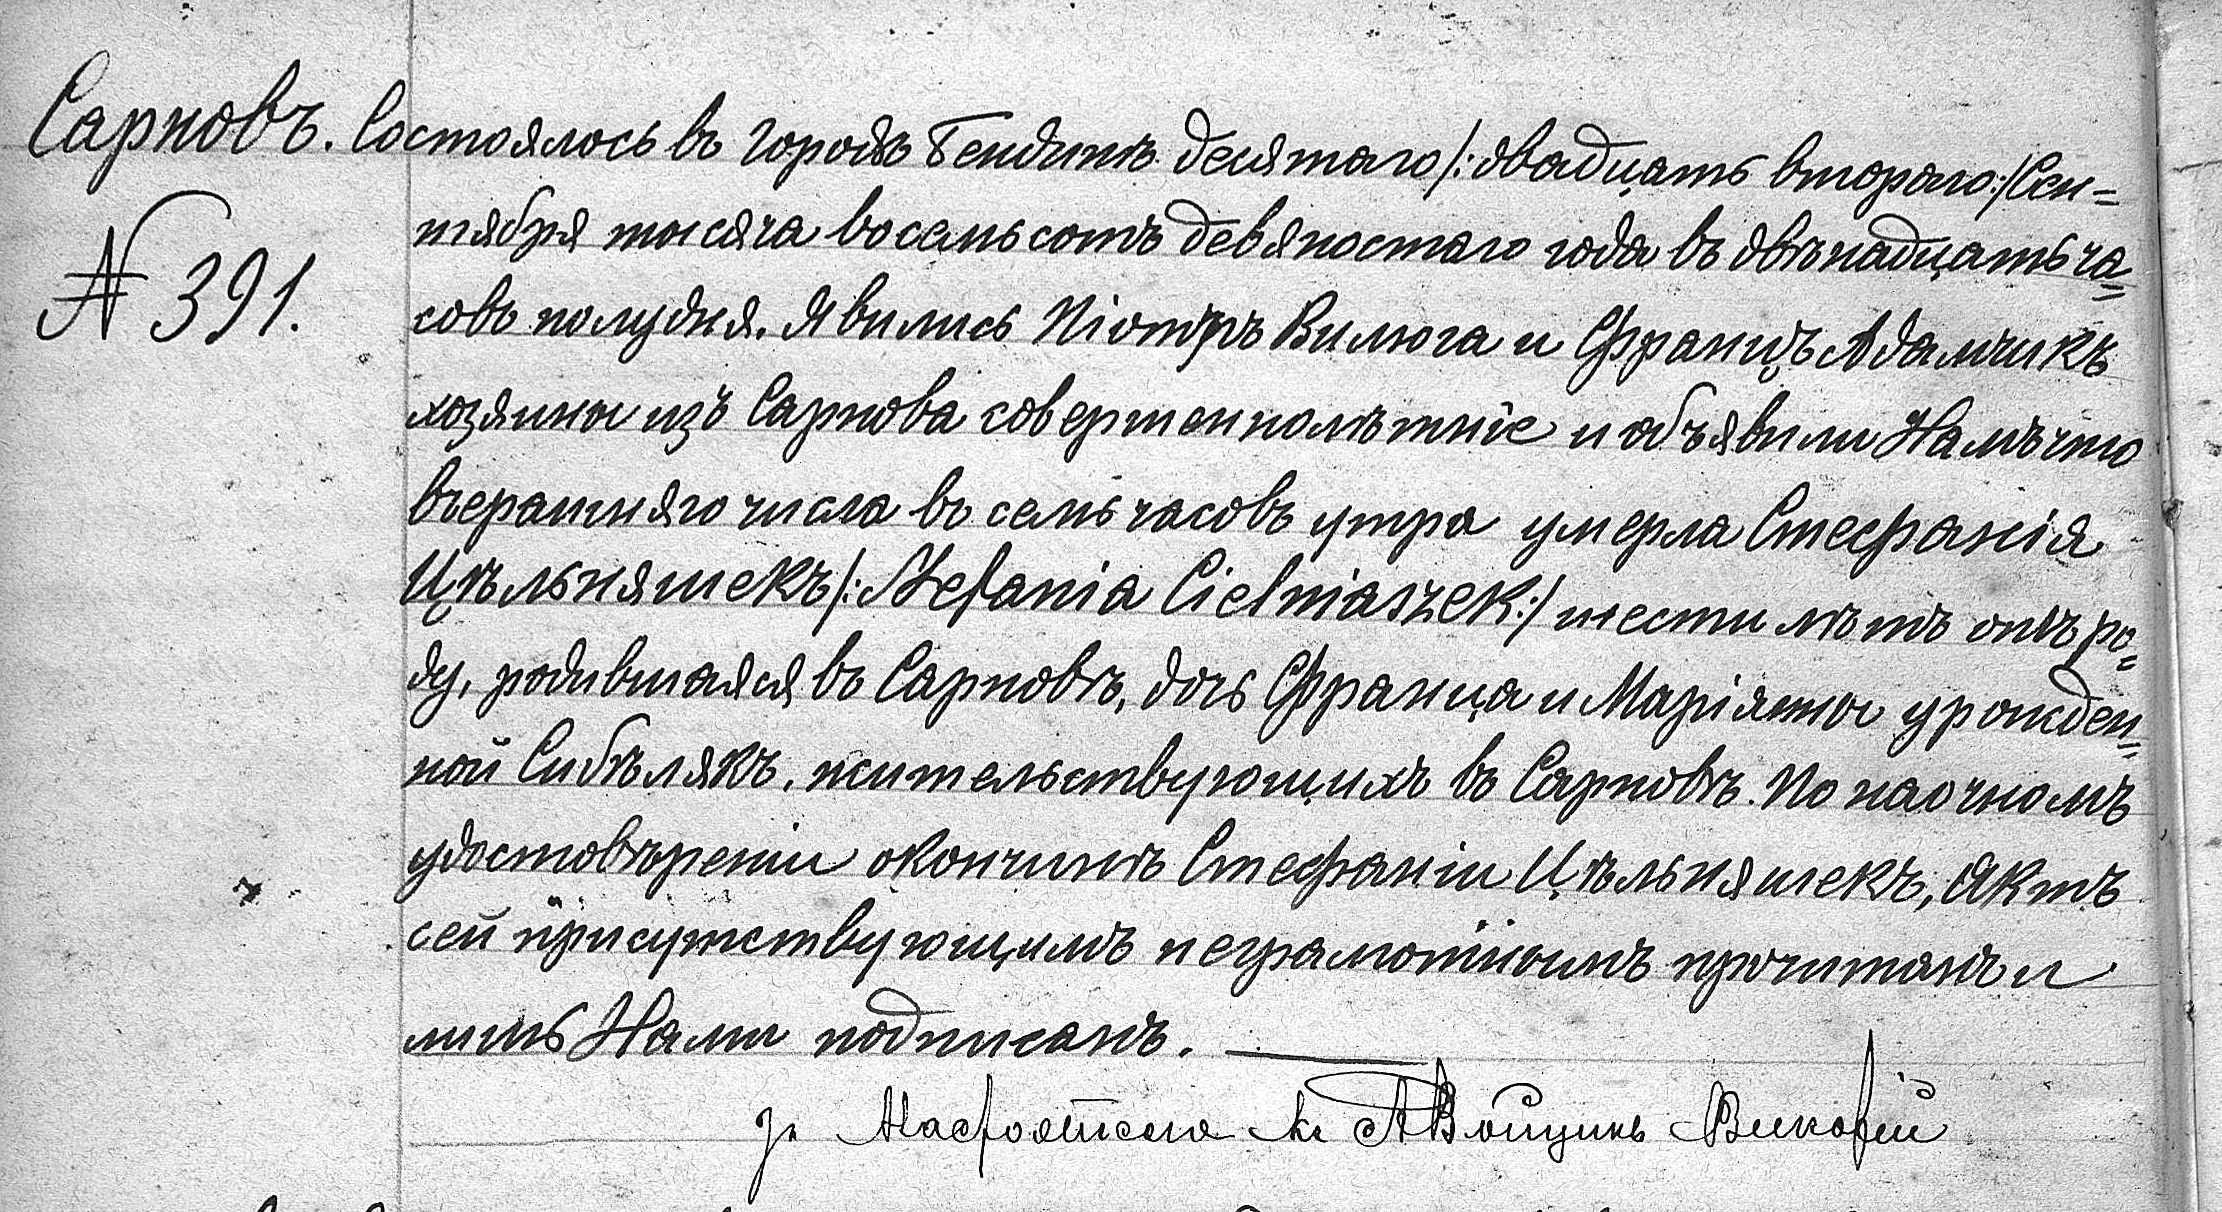 Сарновъ. Состоялось въ городѣ Бендинѣ десятаго /:двадцать втораго:/ Сен=
№ 391.
тября тысяча восемьсотъ девяностаго года въ двѣнадцать ча=
совъ полудня. Явились Піотръ Вилюга и Францъ Адамчикъ
хозяины изъ Сарнова совершеннолѣтніе и объявили Намъ что
вчерашняго числа въ семь часовъ утра умерла Стефанія
Цѣльняшекъ /:Stefania Cielniaszek:/ шести лѣтъ отъ ро=
ду, родившаяся въ Сарновѣ, дочь Франца и Маріянны урожден=
ной Сибѣлякъ, жительствующихъ въ Сарновѣ. По наочномъ
удостовѣреніи окончинѣ Стефаніи Цѣльняшекъ, Актъ
сей присутствующимъ неграмотнымъ прочитанъ и
лишь Нами подписанъ.
за Настоятеля Кс А Войцикъ Викарій